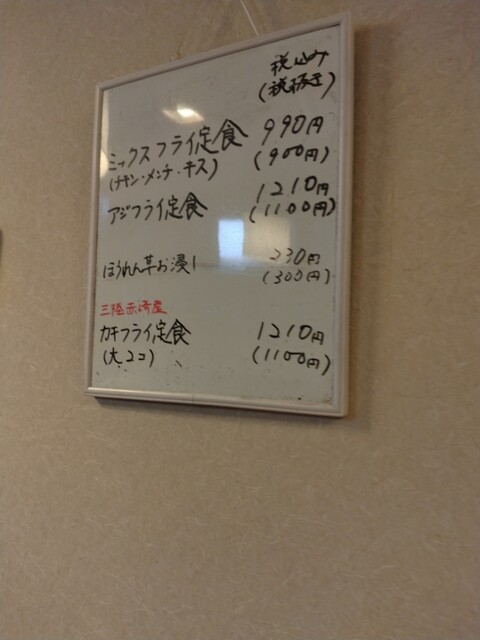 税込み
(税抜き)
ミックスフライ定食 990円
(チキン・メンチ・キス) (900円)
アジフライ定食 1210円
(1100円)
ほうれん草お浸し 330円
(300円)
三陸赤崎産
カキフライ定食 1210円
(大2コ) (1100円)